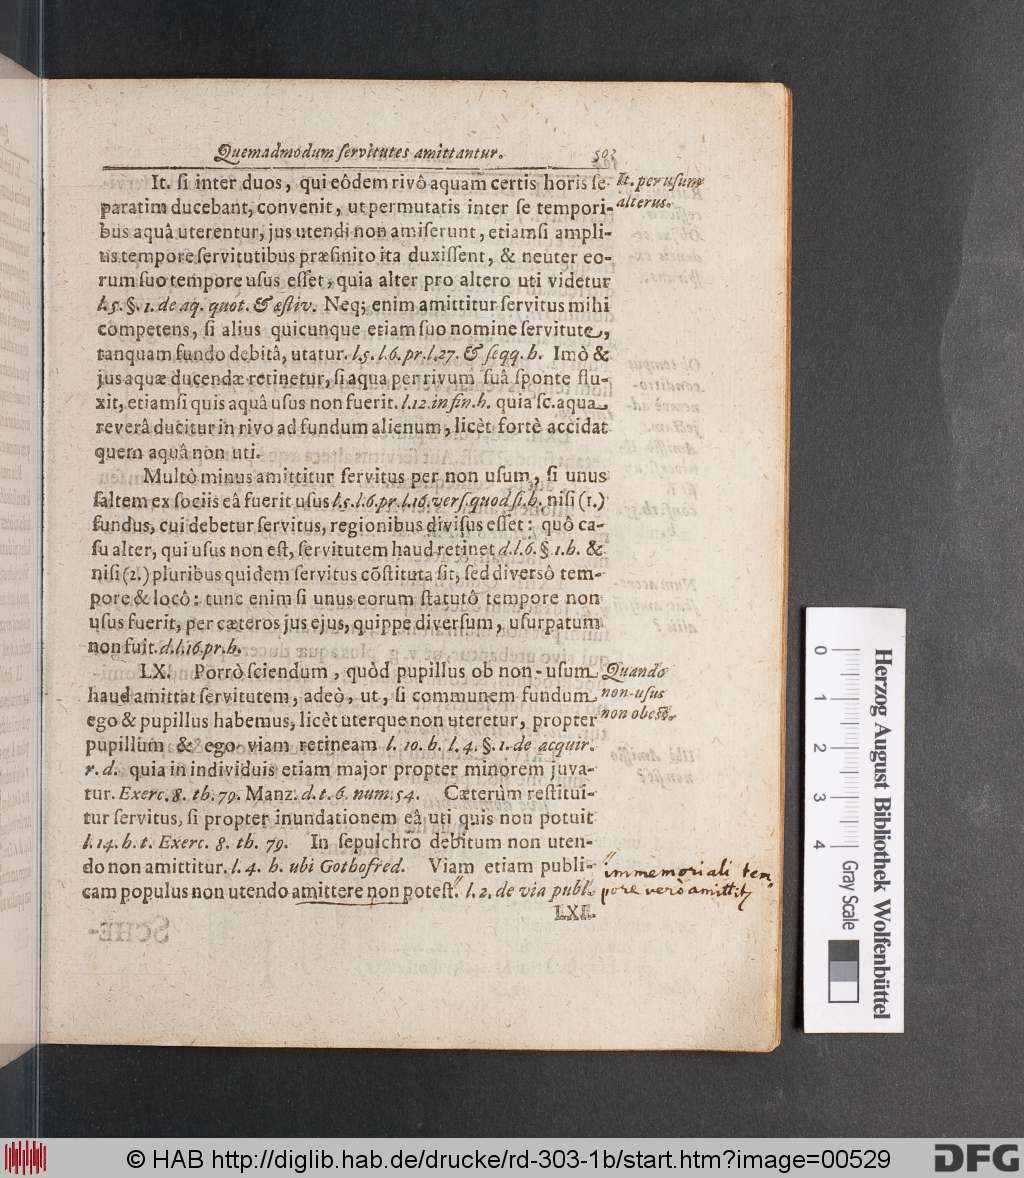 Quemadmodum ſervitutes amittantur. 503
It. ſi inter duos, qui eôdem rivô aquam certis horis ſe-
paratim ducebant, convenit, ut permutatis inter ſe tempori-
bus aquâ uterentur, jus utendi non amiſerunt, etiamſi ampli-
us tempore ſervitutibus præfinito ita duxiſſent, & neuter eo-
rum ſuo tempore uſus eſſet, quia alter pro altero uti videtur
l. 5. §. 1. de aq. quot. & æſtiv. Neq; enim amittitur ſervitus mihi
competens, ſi alius quicunque etiam ſuo nomine ſervitute,
tanquam fundo debitâ, utatur. l. 5. l. 6. pr. l. 27. & ſeqq. h. Imò &
jus aquæ ducendæ retinetur, ſi aqua per rivum ſuâ ſponte flu-
xit, etiamſi quis aquâ uſus non fuerit. l. 12. in fin. h. quia ſc. aqua
reverâ ducitur in rivo ad fundum alienum, licèt fortè accidat
quem aquâ non uti.
It. per uſum
alterus.
Multò minus amittitur ſervitus per non uſum, ſi unus
ſaltem ex ſociis eâ fuerit uſus l. 5. l. 6. pr. l. 16. verſ. quod ſi. h. niſi (1.)
fundus, cui debetur ſervitus, regionibus diviſus eſſet: quô ca-
ſu alter, qui uſus non eſt, ſervitutem haud retinet d. l. 6. §. 1. h. &
niſi (2.) pluribus quidem ſervitus cõſtituta ſit, ſed diversô tem-
pore & locô: tunc enim ſi unus eorum ſtatutô tempore non
uſus fuerit, per cæteros jus ejus, quippe diverſum, uſurpatum
non fuit. d. l. 16. pr. h.
LX. Porrò ſciendum, quòd pupillus ob non-uſum
haud amittat ſervitutem, adeò, ut, ſi communem fundum
ego & pupillus habemus, licèt uterque non uteretur, propter
pupillum & ego viam retineam l. 10. h. l. 4. §. 1. de acquir.
r. d. quia in individuis etiam major propter minorem juva-
tur. Exerc. 8. th. 79. Manz. d. t. 6. num. 54. Cæterùm reſtitui-
tur ſervitus, ſi propter inundationem eâ uti quis non potuit
l. 14. h. t. Exerc. 8. th. 79. In ſepulchrò debitum non uten-
do non amittitur. l. 4. h. ubi Gothofred. Viam etiam publi-
cam populus non utendo amittere non poteſt." l. 2. de via publ.
Quando
non-uſus
non obeſt.
" immemoriali tem
pore verò amittit
LXI.
0 1 2 3 4
Gray Scale
Herzog August Bibliothek Wolfenbüttel
© HAB http://diglib.hab.de/drucke/rd-303-1b/start.htm?image=00529
DFG